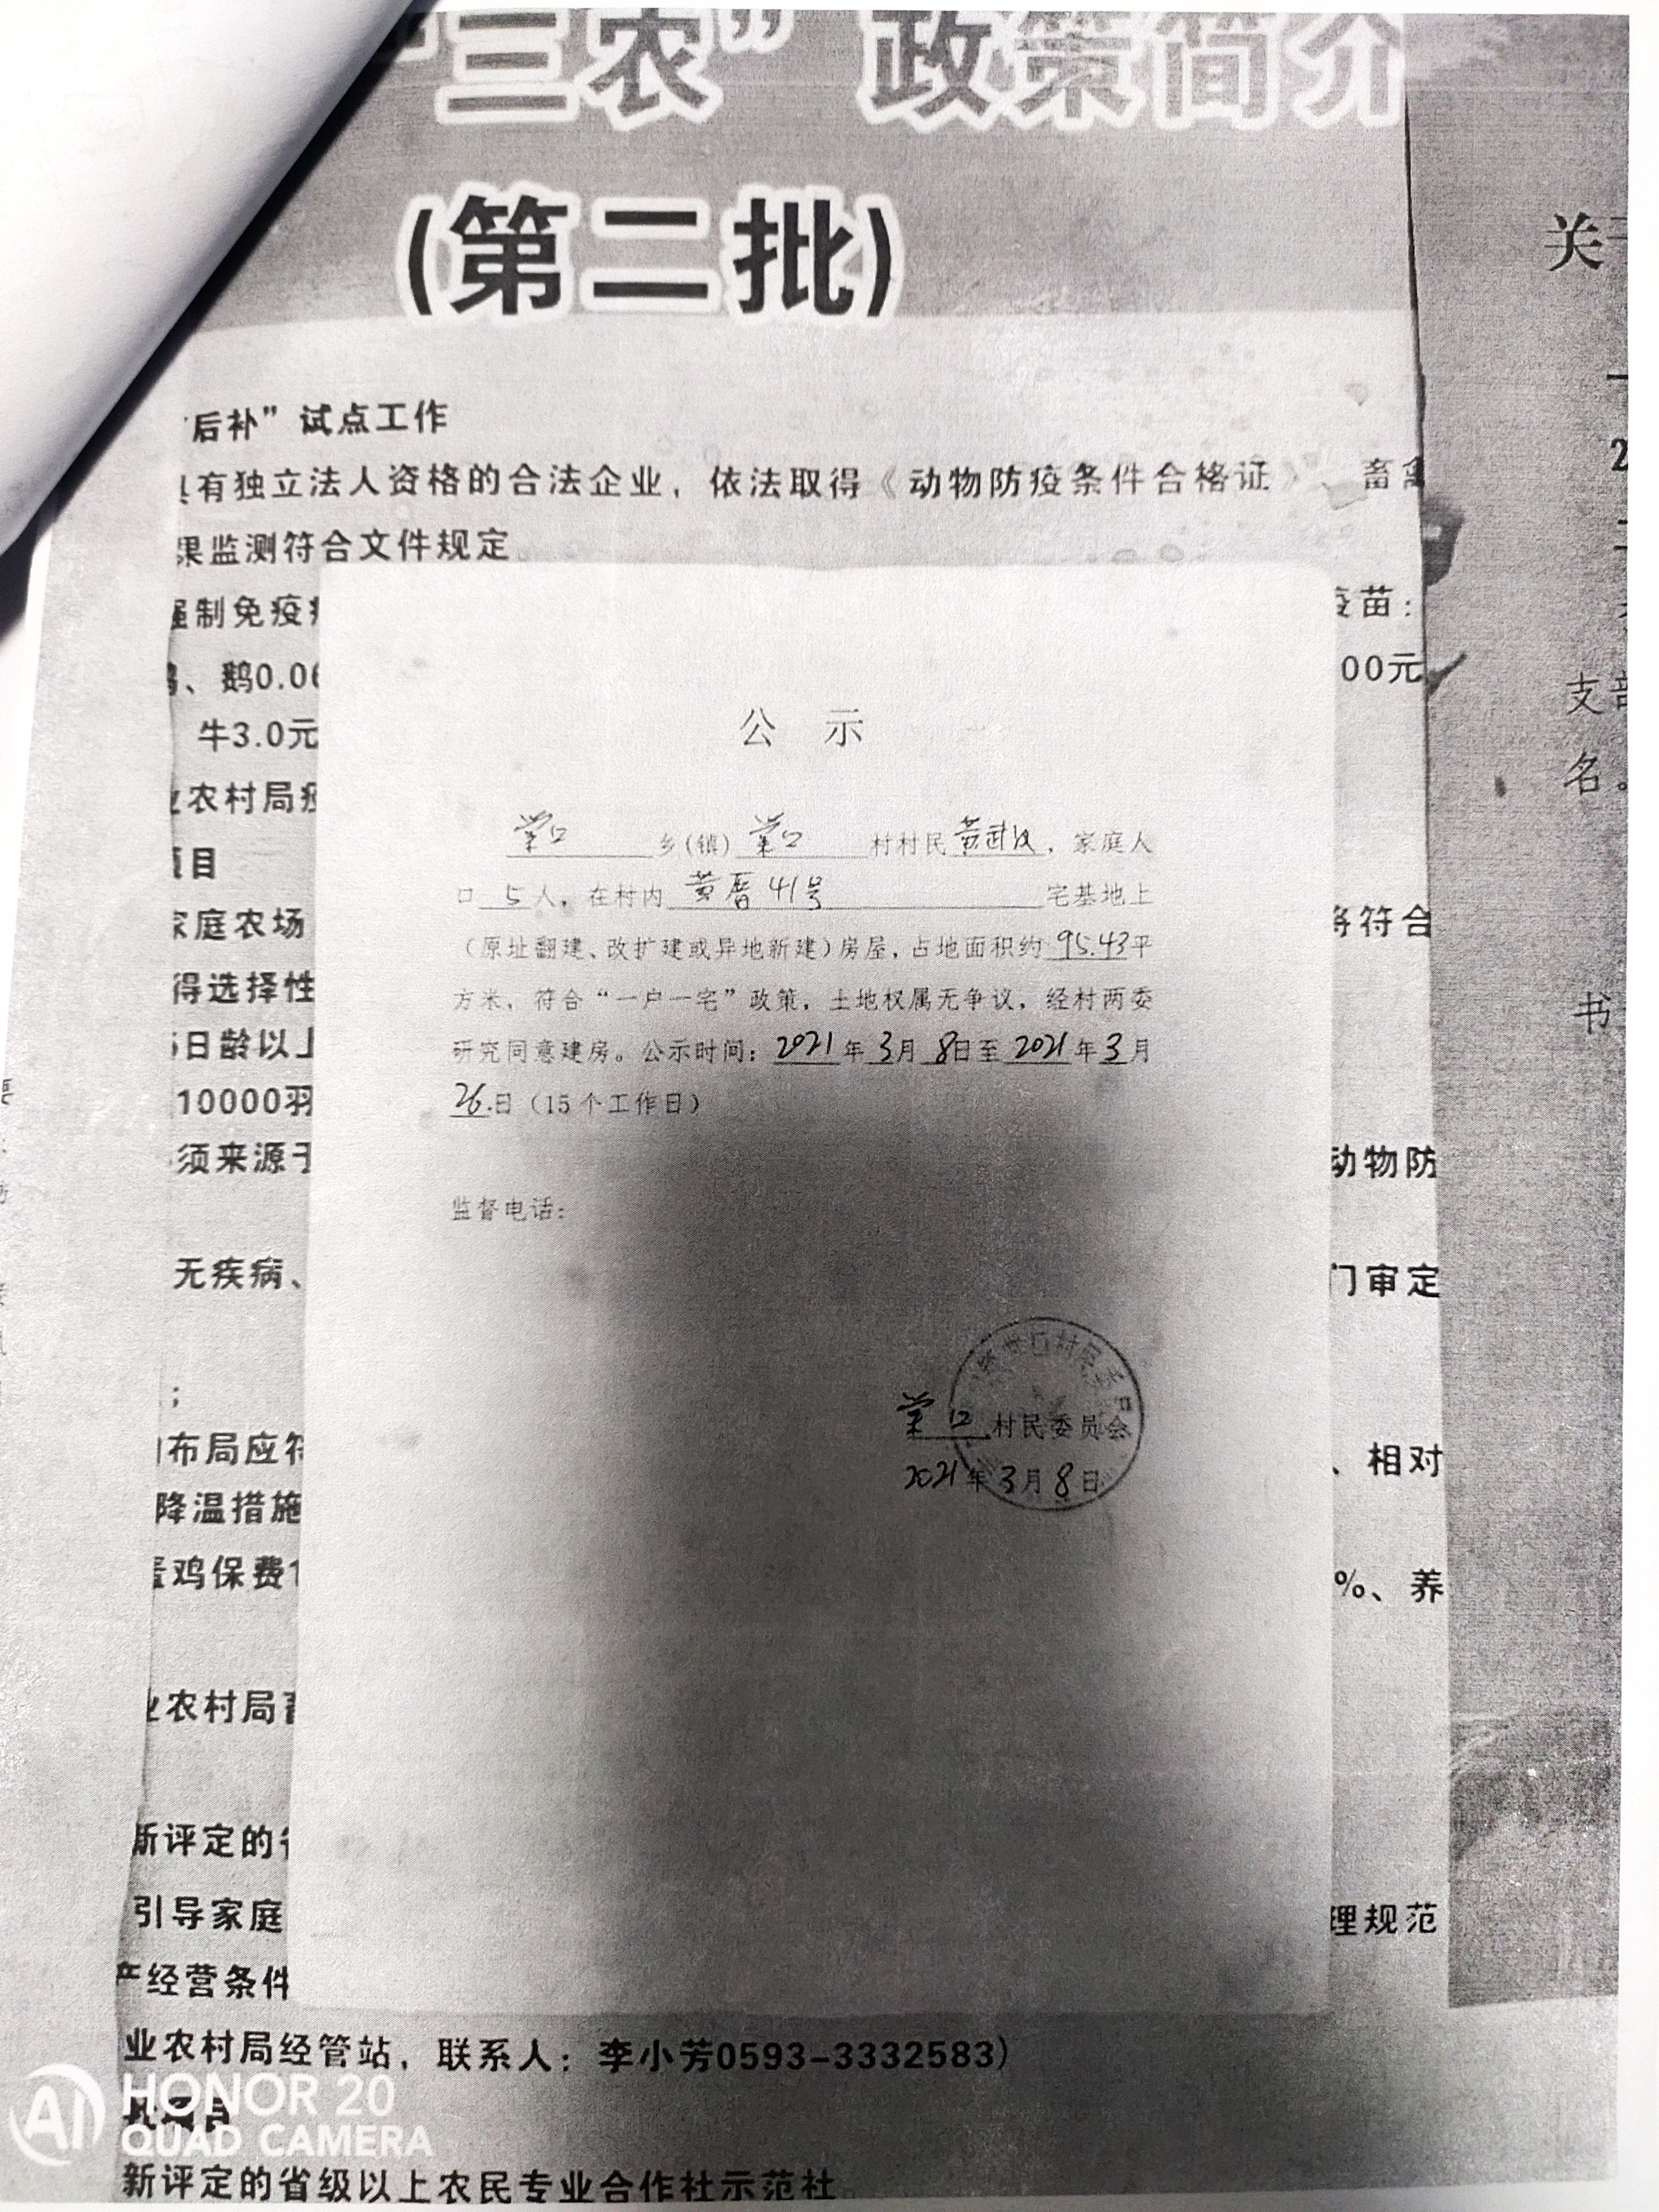 “三农”政策简介
(第二批)
后补”试点工作
具有独立法人资格的合法企业，依法取得《动物防疫条件合格证》、畜禽
果监测符合文件规定。
强制免疫
疫苗：
、鹅0.06
00元
牛3.0元
农村局
项目
家庭农场
将符合
得选择性
5日龄以上
10000羽
须来源于
动物防
无疾病、
门审定
；
布局应符
、相对
降温措施
蛋鸡保费1
%、养
业农村局畜
新评定的省
引导家庭
理规范
产经营条件
业农村局经管站，联系人：李小芳0593-3332583)
新评定的省级以上农民专业合作社示范社
公 示
乡(镇) 村村民黄武汉，家庭人
口 5 人，在村内 黄厝41号 宅基地上
（原址翻建、改扩建或异地新建）房屋，占地面积约 95.43 平
方米，符合“一户一宅”政策，土地权属无争议，经村两委
研究同意建房。公示时间：2021年3月8日至2021年3月
26日（15个工作日）
监督电话：
村民委员会
2021年3月8日
关于
2
支部
名。
书
AI HONOR 20
QUAD CAMERA